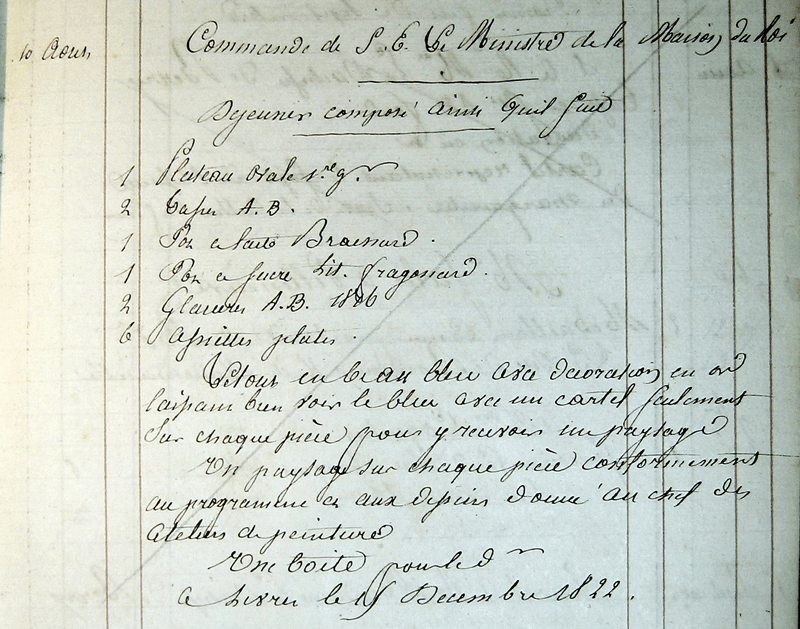 10 Aout Commande de S. E. Le Ministre de la Maison du Roi
Dejeuner composé ainsi quil suit
1 Plateau Ovale 1re g.r
2 Tasses A.B.
1 Pot a lait Brachard.
1 Pot a sucre hit. fragonard.
2 Glacieres A.B. 1806
6 assiettes plates.
Le tout en beau bleu avec decoration en or
laissant bien voir le bleu avec un cartel seulement
sur chaque pièce pour y recevoir un paysage
Un paysage sur chaque pièce conformement
au programme et aux dessins donné au chef des
ateliers de peinture
Une boite pour le d
a Livrer le 15 Decembre 1822.